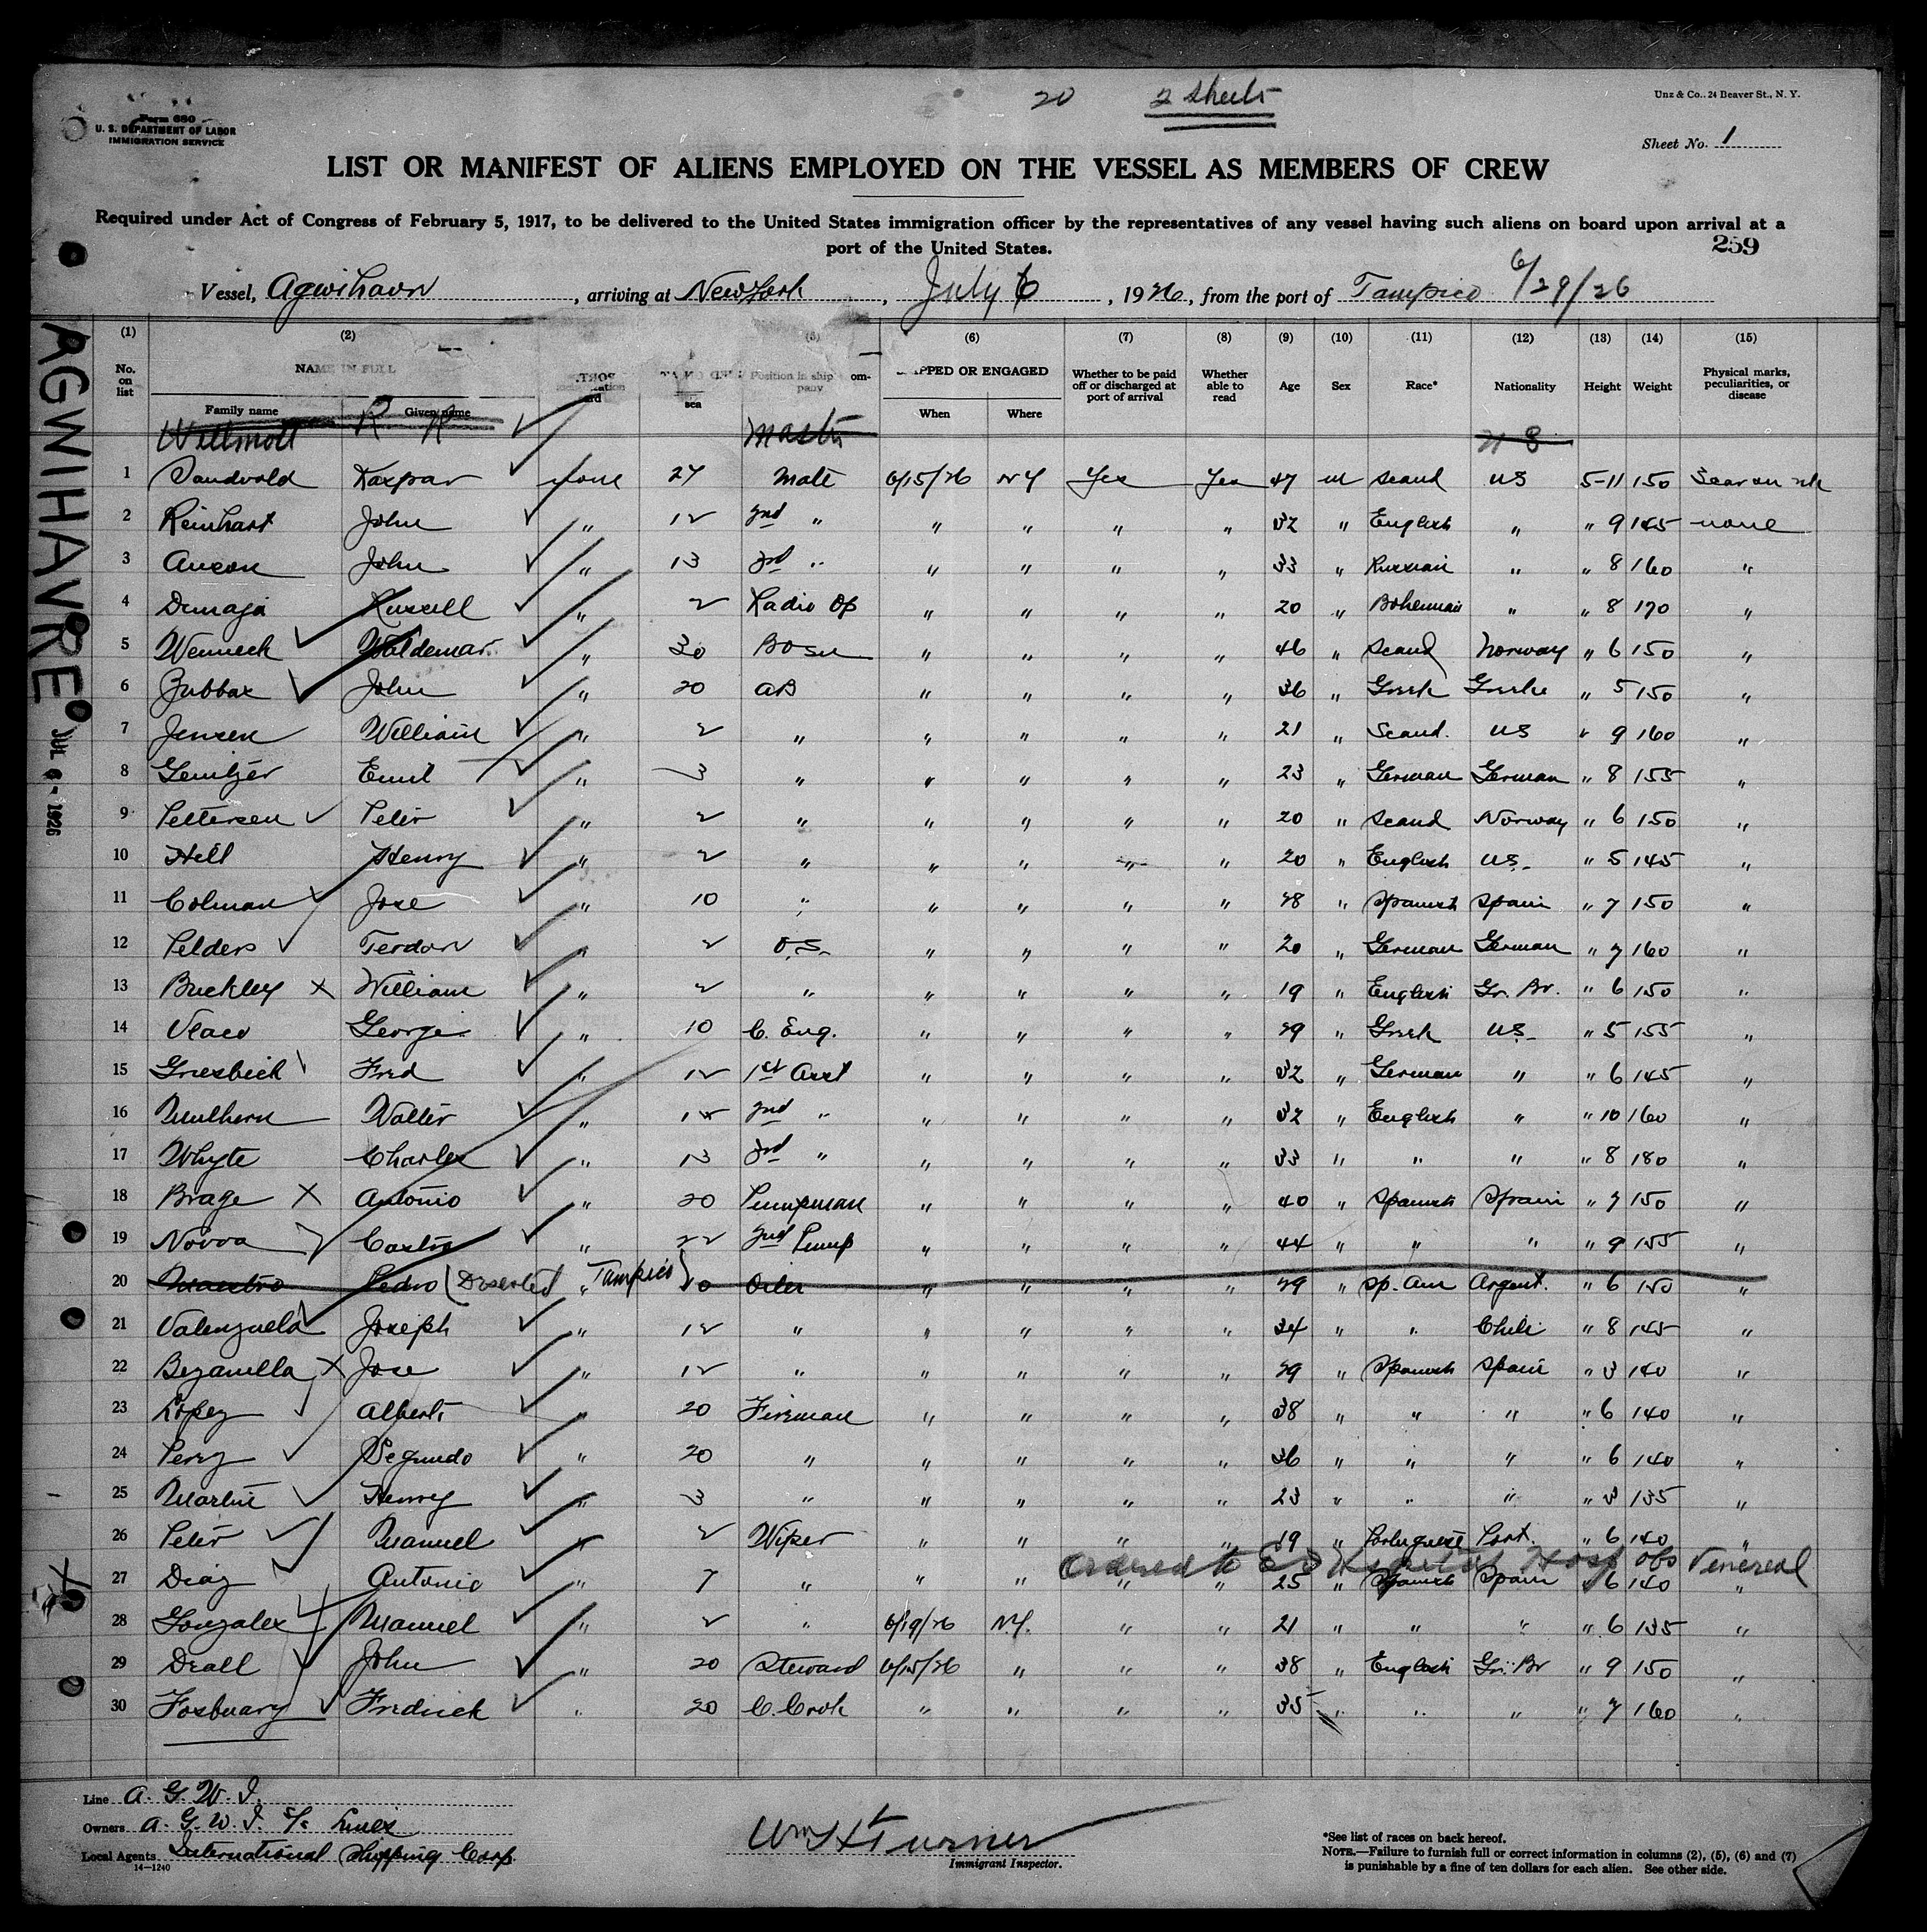 20 2 Sheets
Unz & Co., 24 Beaver St., N. Y.
Form 680
U. S. DEPARTMENT OF LABOR
IMMIGRATION SERVICE
Sheet No. 1
LIST OR MANIFEST OF ALIENS EMPLOYED ON THE VESSEL AS MEMBERS OF CREW
Required under Act of Congress of February 5, 1917, to be delivered to the United States immigration officer by the representatives of any vessel having such aliens on board upon arrival at a
port of the United States.
259
Vessel, Agwihavre, arriving at New York, July 6, 1926, from the port of Tampico 6/29/26
AGWIHAVRE
JUL 6 - 1926
(1) (2) (5) (6) (7) (8) (9) (10) (11) (12) (13) (14) (15)
No. on list NAME IN FULL Position in ship com-pany SHIPPED OR ENGAGED Whether to be paid off or discharged at port of arrival Whether able to read Age Sex Race* Nationality Height Weight Physical marks, peculiarities, or disease
Family name Given name sea When Where
Willmott R R Master US
1 Sandvold Kaspar none 27 Mate 6/15/26 NY Yes Yes 47 m Scand US 5-11 150
2 Reinhart John " 12 2nd " " " " " 32 " English " " 9 145 none
3 John " 13 3rd " " " " " 33 " Russian " " 8 160 "
4 Russell " 2 Radio Op " " " " 20 " Bohemian " " 8 170 "
5 Wenneck Waldemar " 30 Bosn " " " " 46 " Scand Norway " 6 150 "
6 John " 20 AB " " " " 36 " Greek " 5 150 "
7 Jensen William " 2 " " " " " 21 " Scand. US " 9 160 "
8 Emil " 3 " " " " " 23 " German German " 8 155 "
9 Pettersen Peter " 2 " " " " " 20 " Scand Norway " 6 150 "
10 Hill Henry " 2 " " " " " 20 " English US. " 5 145 "
11 Colman Jose " 10 " " " " " 28 " Spanish Spain " 7 150 "
12 Pelders " 2 O.S. " " " " 20 " German German " 7 160 "
13 Buckley X William " 2 " " " " " 19 " English Gr. Br. " 6 150 "
14 Vlaco George " 10 C. Eng. " " " " 29 " Greek US. " 5 155 "
15 Griesbeck Fred " 12 1st Asst " " " " 32 " German " " 6 145 "
16 Mulhern Walter " 2nd " " " " " 32 " English " " 10 160 "
17 Whyte Charles " 13 3rd " " " " " 33 " " " " 8 180 "
18 Brage X Antonio " 20 Pumpman " " " " 40 " Spanish Spain " 7 150 "
19 Novoa Castro " 22 2nd Pump " " " " 44 " " " " 9 155 "
20 Pedro (Deserted Tampico) " 10 Oiler " " " " 29 " Sp. Am Argent. " 6 150 "
21 Valenzuela Joseph " 12 " " " " " 34 " " Chili " 8 145 "
22 Bezanella X Jose " 12 " " " " " 29 " Spanish Spain " 3 140 "
23 Lopez Albert " 20 Fireman " " " " 38 " " " " 6 140 "
24 Perez Segundo " 20 " " " " " 36 " " " " 6 140 "
25 Martin Henry " 3 " " " " " 23 " " " " 3 135 "
26 Peter Manuel " 2 Wiper " " " " 19 " Portuguese Port. " 6 140 "
Ordered to Hosp obs Venereal
27 Diaz Antonio " 7 " " " " " 25 " Spanish Spain " 6 140 "
28 Gonzalez Manuel " 2 " 6/19/26 N.Y. " " 21 " " " " 6 135 "
29 Deall John " 20 Steward 6/15/26 " " " 38 " English Gr. Br " 9 150 "
30 Fosbuary Fredrick " 20 C. Cook " " " " 35 " " " " 7 160 "
Line A. G. W. I.
Owners A. G. W. I. S/S Lines
Local Agents International Shipping Corp
14—1240
Wm H Turner
Immigrant Inspector.
*See list of races on back hereof.
NOTE.—Failure to furnish full or correct information in columns (2), (5), (6) and (7)
is punishable by a fine of ten dollars for each alien. See other side.